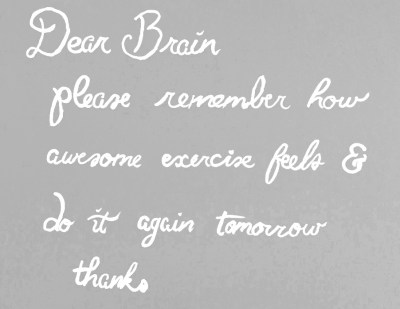 Dear Brain
please remember how
awesome exercise feels &
do it again tomorrow
thanks